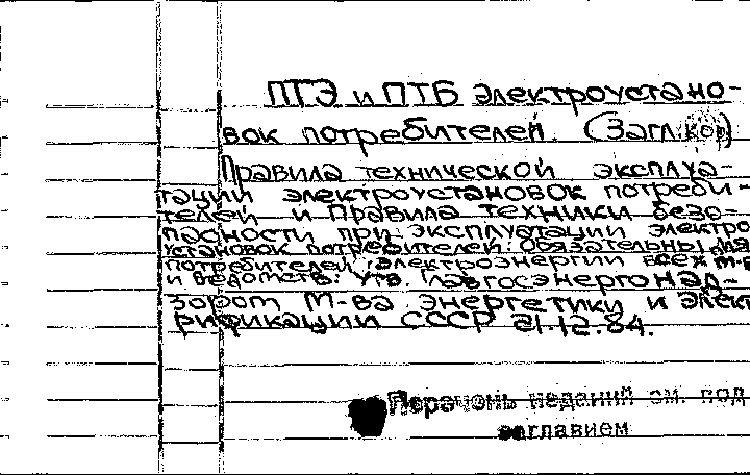 ПТЭ и ПТБ электроустано-
вок потребителей. (Загл. кор)
Правила технической эксплуа-
тации электроустановок потреби-
телей и Правила техники безо-
пасности при эксплуатации электро
установок потребителей: Обязательны для
потребителей электроэнергии всех м-в
и ведомств: Утв. Главгосэнергонад-
зором М-ва энергетики и элект
рификации СССР 21.12.84.
Перечень изданий см. под
заглавием